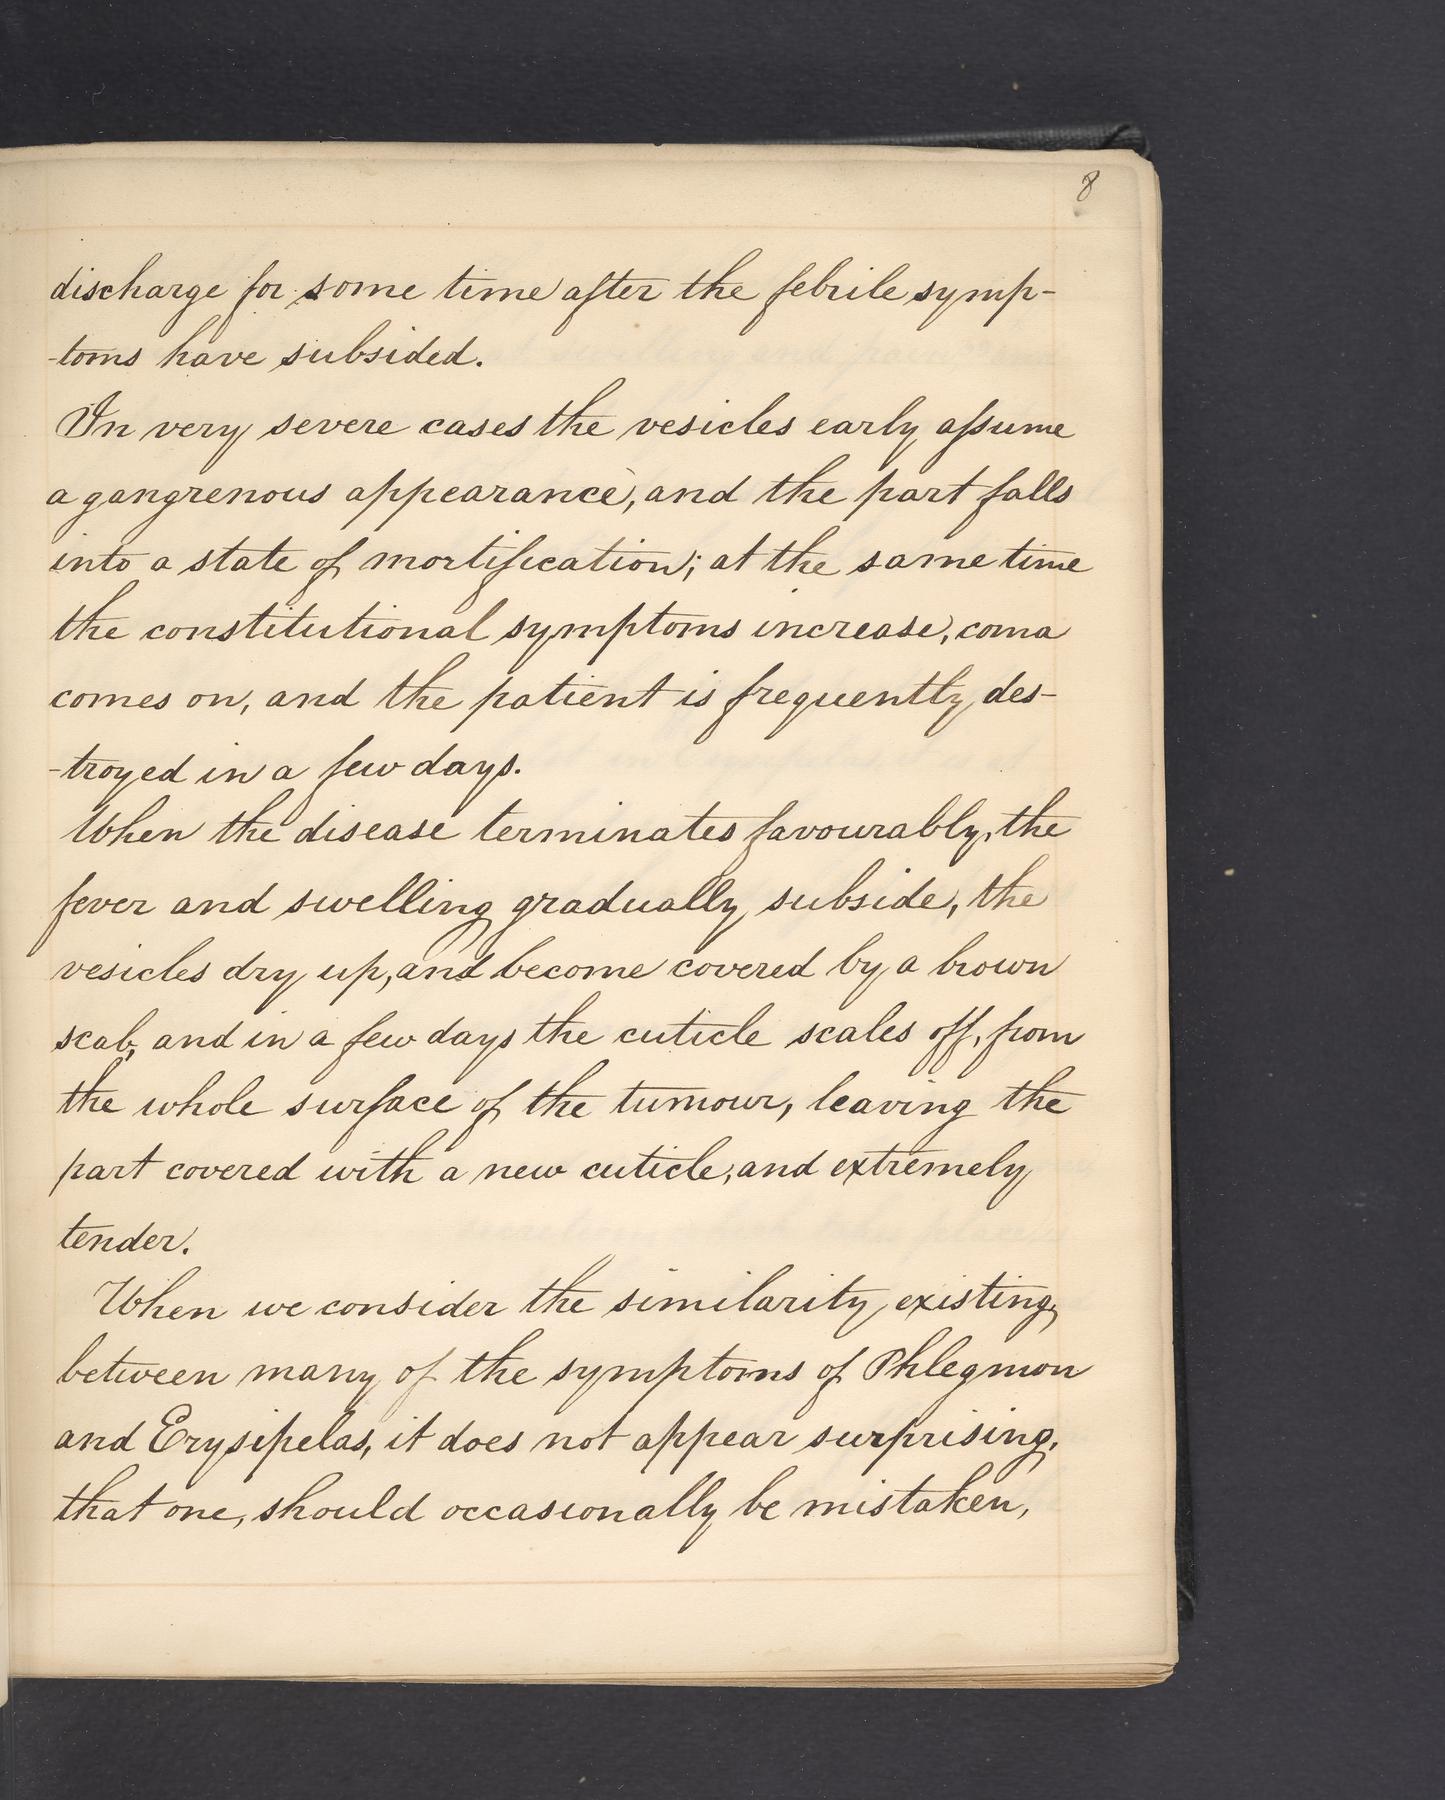 8
discharge for some time after the febrile symp-
-toms have subsided.
In very severe cases the vesicles early aſsume
a gangrenous appearance, and the part falls
into a state of mortification; at the same time
the constitutional symptoms increase, coma
comes on, and the patient is frequently des-
-troyed in a few days.
When the disease terminates favourably, the
fever and swelling gradually subside, the
vesicles dry up, and become covered by a brown
scab, and in a few days the cuticle scales off, from
the whole surface of the tumour, leaving the
part covered with a new cuticle, and extremely
tender.
When we consider the similarity existing
between many of the symptoms of Phlegmon
and Erysipelas, it does not appear surprising,
that one, should occasionally be mistaken,